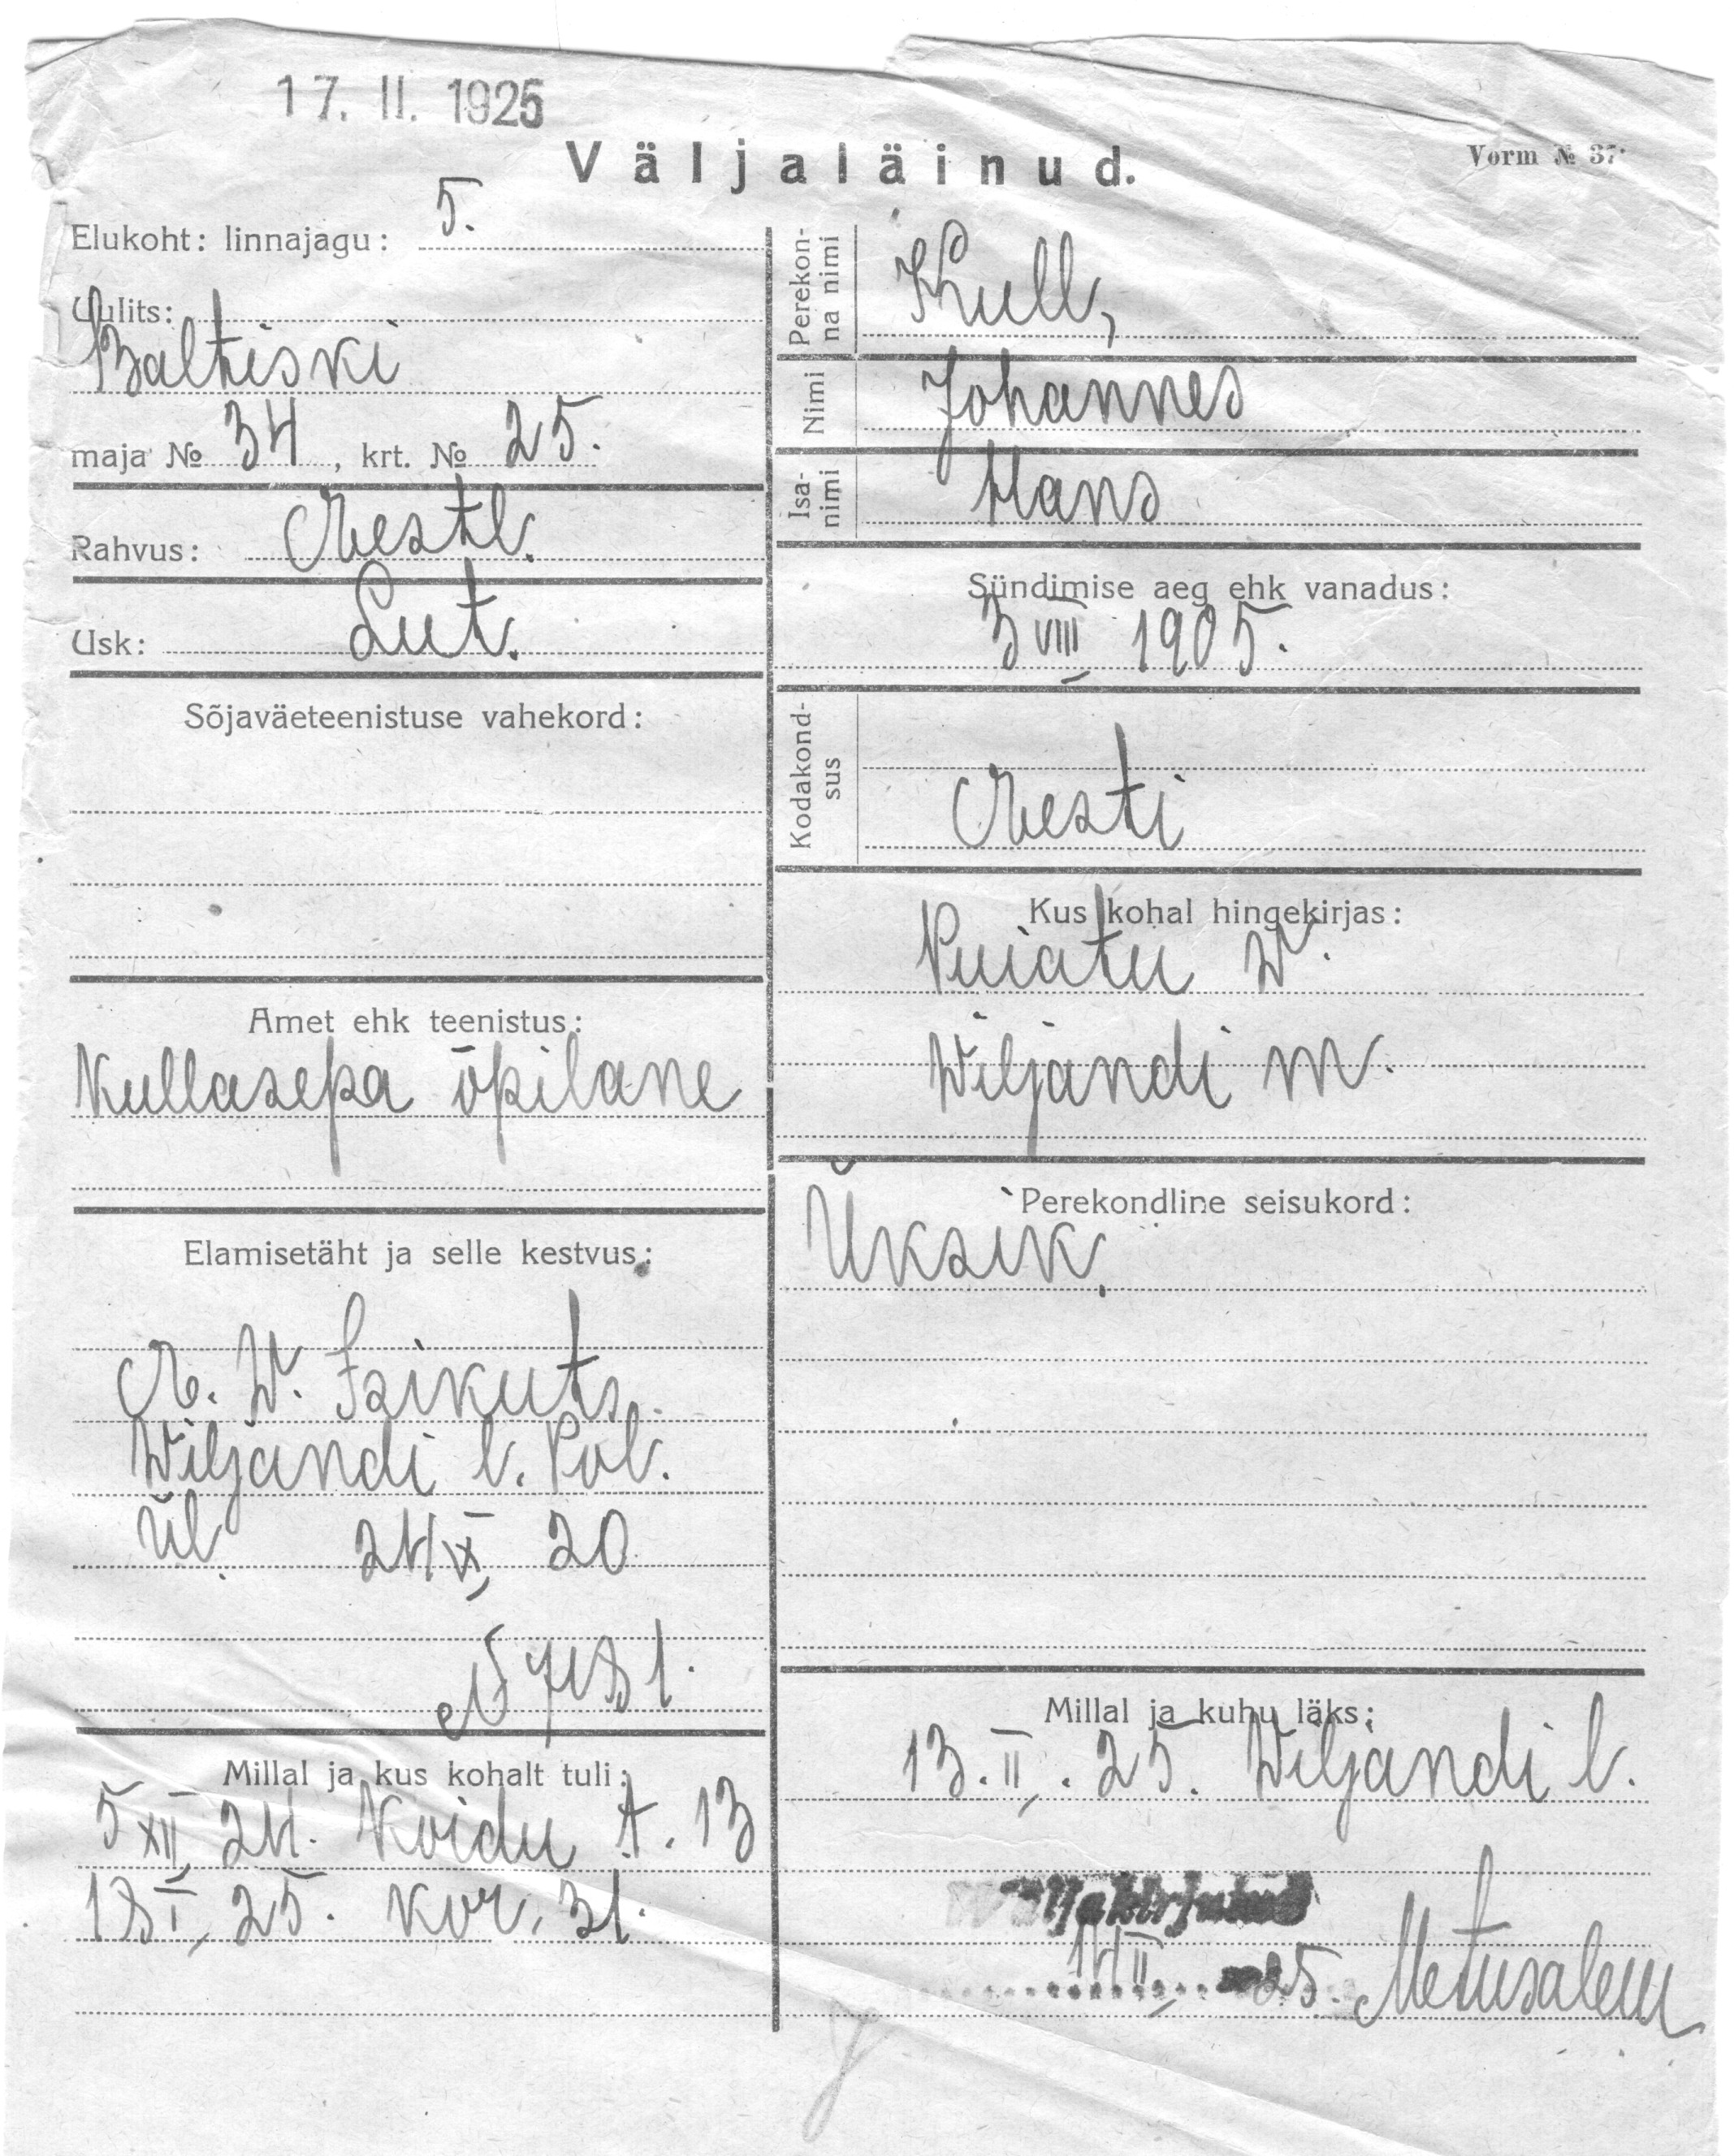 17. II. 1925
Väljaläinud.
Vorm № 37
Elukoht: linnajagu: 5.
Uulits:
Baltiski
maja № 34, krt. № 25.
Rahvus: Eestl.
Usk: Lut.
Sõjaväeteenistuse vahekord:
Amet ehk teenistus:
Kullasepa õpilane
Elamisetäht ja selle kestvus:
E. W. Isikuts.
Wiljandi l. Pol.
Ül. 24 XI 20
№ 7481.
Millal ja kus kohalt tuli:
5 XII 24. Koidu t. 13
18 I 25. kor. 31.
Perekon-
na nimi
Kull,
Nimi Johannes
Isa-
nimi
Hans
Sündimise aeg ehk vanadus:
3 VIII 1905.
Kodakond-
sus
Eesti
Kus kohal hingekirjas:
Puiatu W.
Wiljandi m.
Perekondline seisukord:
Üksik.
Millal ja kuhu läks:
13. II. 25. Wiljandi l.
Wäljakirjutud
14 II 25. Metusalem